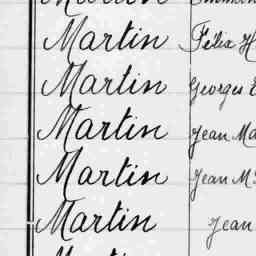 Martin Félix H
Martin Georges E
Martin Jean Ma
Martin Jean M
Martin Jean